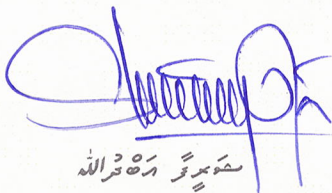 ޝަރީފާ އަބްދުﷲ